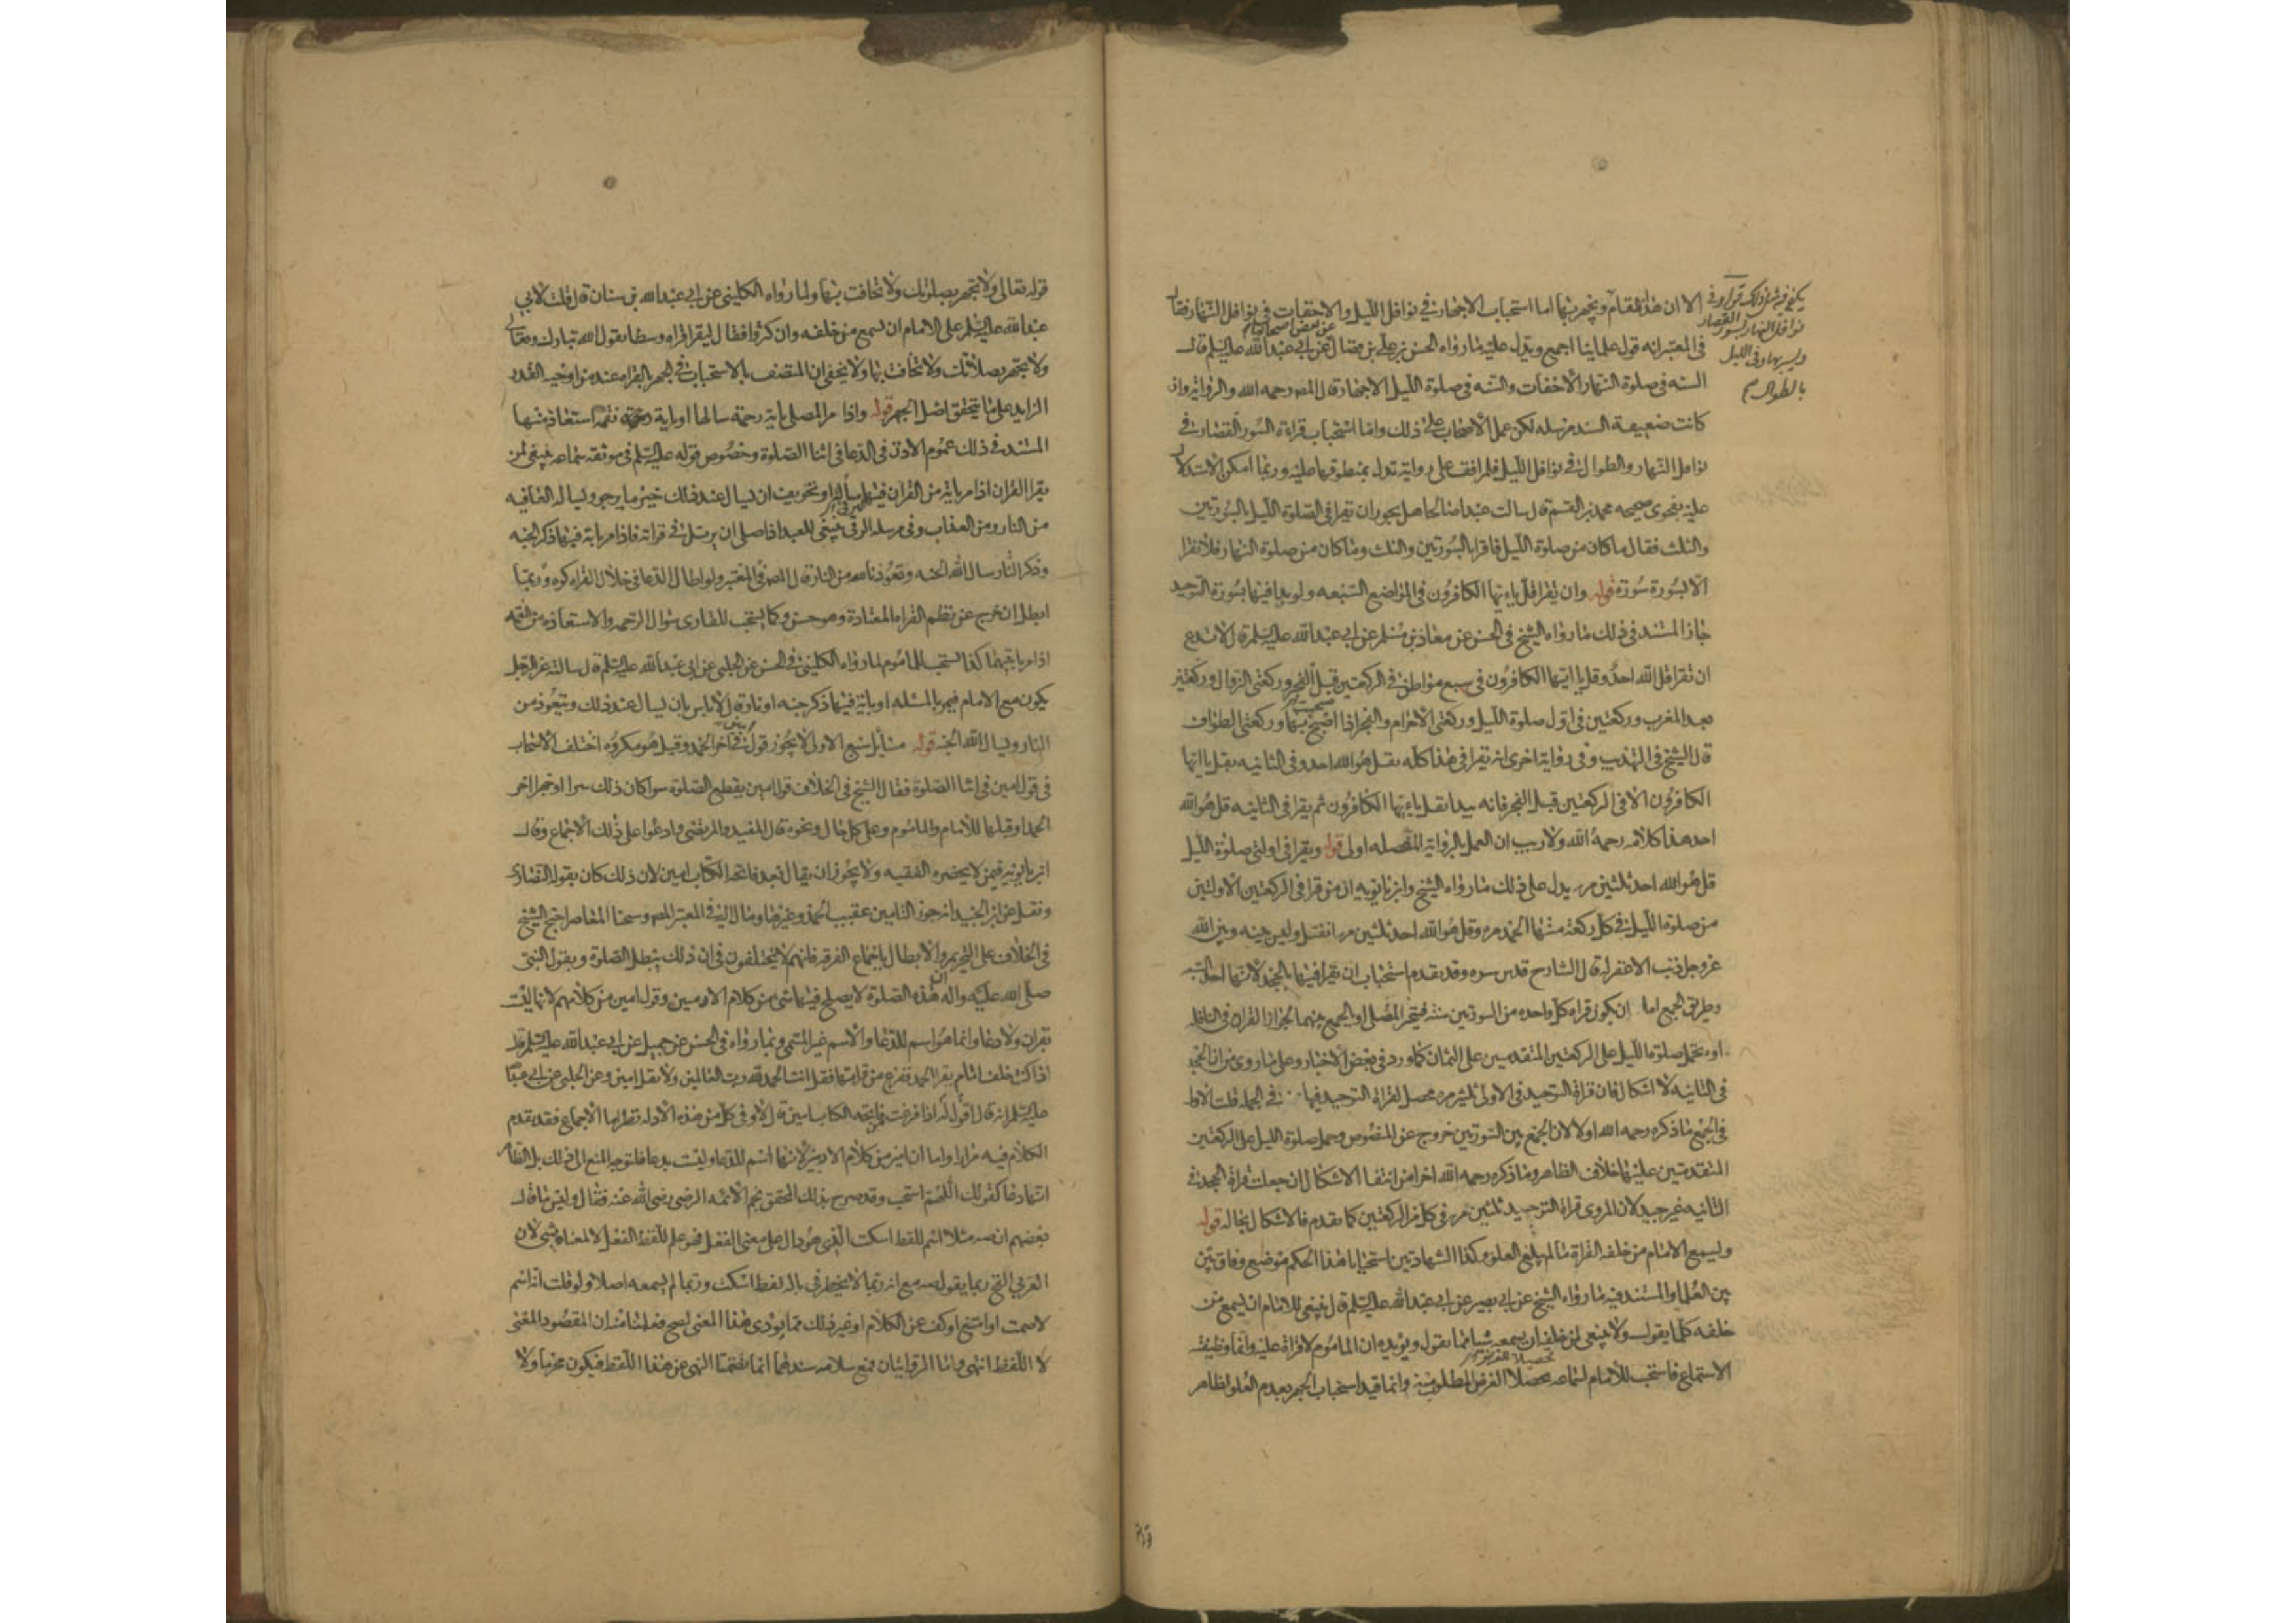 الا ان هذا المقام ويجهر بهما اما استحباب الاجهار في نوافل الليل والاخفات في نوافل النهار فقال
في المعتبر انه قول علماينا اجمع ويدل عليه ما رواه الحسن بن علي بن فضال عن بعض اصحابنا عن ابي عبد الله عليه السلم قال
السنه في صلوة النهار الاخفات والسنه في صلوة الليل الاجهار قال المصر رحمه الله والرواية وان
كانت ضعيفة السند مرسله لكن عمل الاصحاب على ذلك واما استحباب قراءة السور القصار في
نوافل النهار والطوال في نوافل الليل فلم اقف على رواية تدل بمنطوقها عليه وربما امكن الاستدلال
عليه بفحوى صحيحه محمد بن القسم قال سالت عبدا صالحا هل يجوز ان تقرا في الصلوة الليل بالسورتين
والثلث فقال ما كان من صلوة الليل فاقرا بالسورتين والثلث وما كان من صلوة النهار فلا تقرا
الا بسورة سورة قوله وان يقرا قل يا ايها الكافرون في المواضع السبعه ولو بدا فيها بسورة التوحيد
جاز المستند في ذلك ما رواه الشيخ في الحسن عن معاذ بن مسلم عن ابي عبد الله عليه السلم قال لا تدع
ان تقرا قل الله احد وقل يا ايها الكافرون في سبع مواطن في الركعتين قبل الفجر وركعتي الزوال وركعتين
بعد المغرب وركعتين في اول صلوة الليل وركعتي الاحرام والفجر اذا اصبحت بها وركعتي الطواف
قال الشيخ في التهذيب وفي رواية اخرى انه يقرا في هذا كله بقل هو الله احد وفي الثانيه بقل يا ايها
الكافرون الا في الركعتين قبل الفجر فانه يبدا بقل يا ايها الكافرون ثم يقرا في الثانيه قل هو الله
احد هذا كلامه رحمه الله ولا ريب ان العمل بالرواية المفصله اولى قوله ويقرا في اولتي صلوة الليل
قل هو الله احد ثلثين مره يدل على ذلك ما رواه الشيخ وابن بابويه ان من قرا في الركعتين الاولتين
من صلوة الليل في كل ركعة منهما الحمد مره وقل هو الله احد ثلثين مره انفتل وليس بينه وبين الله
عز وجل ذنب الا غفر له قال الشارح قدس سره وقد تقدم استحباب ان يقرا فيهما بالجحد لانهما احد السبعه
وطريق الجمع اما ان يكون قراه كل واحده من السورتين سنة فيتخير المصلى او الجمع بينهما لجواز القران في النافله
او يحمل صلوة الليل على الركعتين المتقدمين على الثمان كما ورد في بعض الاخبار وعلى ما روى من ان الجحد
في الثانيه لا اشكال فان قراة التوحيد في الاولى ثلثين مره محصل لقراة التوحيد فيها في الجمله قلت الاول
في الجمع ما ذكره رحمه الله اولا لان الجمع بين السورتين خروج عن المنصوص وحمل صلوة الليل على الركعتين
المتقدمتين عليها خلاف الظاهر وما ذكره رحمه الله اخرا من انتفا الاشكال ان جعلت قراة الجحد في
الثانيه غير جيد لان المروى قراة التوحيد ثلثين مره في كل من الركعتين كما تقدم فالاشكال بحاله قوله
ويسمع الامام من خلفه القراة ما لم يبلغ العلو وكذا الشهادتين استحبابا هذا الحكم موضع وفاق بين
بين العلما والمستند فيه ما رواه الشيخ عن ابي بصير عن ابي عبد الله عليه السلم قال ينبغي للامام ان يسمع من
خلفه كلما يقول ولا ينبغي لمن خلفه ان يسمعه شيا مما يقول ويويده ان الماموم لا قراة عليه وانما وظيفته
الاستماع فاستحب للامام اسماعه محصلا الغرض المطلوب منه وانما قيد استحباب الجهر بعدم العلو لظاهر
نوافل النهار بسور القصار
ويسر بها وفي الليل
بالطوال
قوله تعالى ولا تجهر بصلوتك ولا تخافت بها ولما رواه الكليني عن ابي عبد الله بن سنان قال قلت لابي
عبد الله عليه السلم على الامام ان يسمع من خلفه وان كثروا فقال ليقرا قراه وسطا يقول الله تبارك وتعالى
ولا تجهر بصلاتك ولا تخافت بها ولا يخفى ان المتصف بالاستحباب في الجهر بالقراه عند من اوجبه القدر
الزايد على ما يتحقق اصل الجهر قوله واذا مر المصلى باية رحمة سالها او باية نقمة استعاذ منها
المستند في ذلك عموم الاذن في الدعا في اثنا الصلوة وخصوص قوله عليه السلم في موثقه سماعه ينبغي لمن
يقرا القران اذا مر باية من القران فيها مسأله او تخويف ان يسال عند ذلك خير ما يرجو ويساله العافيه
من النار ومن العذاب وفي مرسله البرقي ينبغي للعبد اذا صلى ان يرتل في قراته فاذا مر باية فيها ذكر الجنه
وذكر النار سال الله الجنه وتعوذ بالله من النار قال المصر في المعتبر ولو اطال الدعا في خلال القراه كره وربما
ابطل ان خرج عن نظم القراه المعتادة وهو حسن وكما يستحب للقارى سوال الرحمه والاستعاذه من النقمه
اذا مر بايتهما كذا يستحب للماموم لما رواه الكليني في الحسن عن الحلبي عن ابي عبد الله عليه السلم قال سالته عن الرجل
يكون مع الامام فيمر بالمسئله او باية فيها ذكر جنه او نار قال لا باس بان يسال عند ذلك ويتعوذ من
النار ويسال الله الجنه قوله مسائل سبع الاولى لا يجوز قول امين في اخر الحمد وقيل هو مكروه اختلف الاصحاب
في قول امين في اثنا الصلوة فقال الشيخ في الخلاف قول امين يقطع الصلوة سوا كان ذلك سرا او جهرا اخر
الحمد او قبلها للامام والماموم وعلى كل حال ونحوه قال المفيد والمرتضى وادعوا على ذلك الاجماع وقال
ابن بابويه فيمن لا يحضره الفقيه ولا يجوز ان يقال بعد فاتحه الكتاب امين لان ذلك كان يقوله النصارى
ونقل عن ابن الجنيد انه جوز التامين عقيب الحمد وغيرها ومال اليه في المعتبر المصر وشيخنا المعاصر احتج الشيخ
في الخلاف على التحريم والابطال باجماع الفرقه فانهم لا يختلفون في ان ذلك يبطل الصلوة وبقول النبي
صلى الله عليه واله ان هذه الصلوة لا يصلح فيها شى من كلام الادميين وقول امين من كلامهم لانها ليست
بقران ولا دعا وانما هو اسم للدعا والاسم غير المسمى وبما رواه في الحسن عن جميل عن ابي عبد الله عليه السلم قال
اذا كنت خلف امام يقرا الحمد ففرغ من قراتها فقل انت الحمد لله رب العالمين ولا تقل امين وعن الحلبي عن ابي عبد الله
عليه السلم انه قال اقول له اذا فرغت من فاتحه الكتاب امين قال لا وفي كل من هذه الادله نظر اما الاجماع فقد تقدم
الكلام فيه مرارا واما ان امين من كلام الادميين لانها اسم للدعا وليست بدعا فلتوجه المنع الى ذلك بل الظاهر
انها دعا كقولك اللهم استجب وقد صرح بذلك المحقق نجم الائمه الرضى رضى الله عنه فقال وليس ما قال
بعضهم ان صه مثلا اسم للفظ اسكت الذي هو دال على معنى الفعل فهو علم للفظ الفعل لا لمعناه بشى لان
العربي القح ربما يقول صه مع انه ربما لا يخطر في باله لفظ اسكت وربما لم يسمعه اصلا ولو قلت انه اسم
لاصمت او امتنع او كف عن الكلام او غير ذلك مما يودى هذا المعنى لصح فعلمنا منه ان المقصود المعنى
لا اللفظ انتهى واما الروايتان فمع سلامه سندهما انما تضمنتا النهى عن هذا اللفظ فيكون محرما ولا